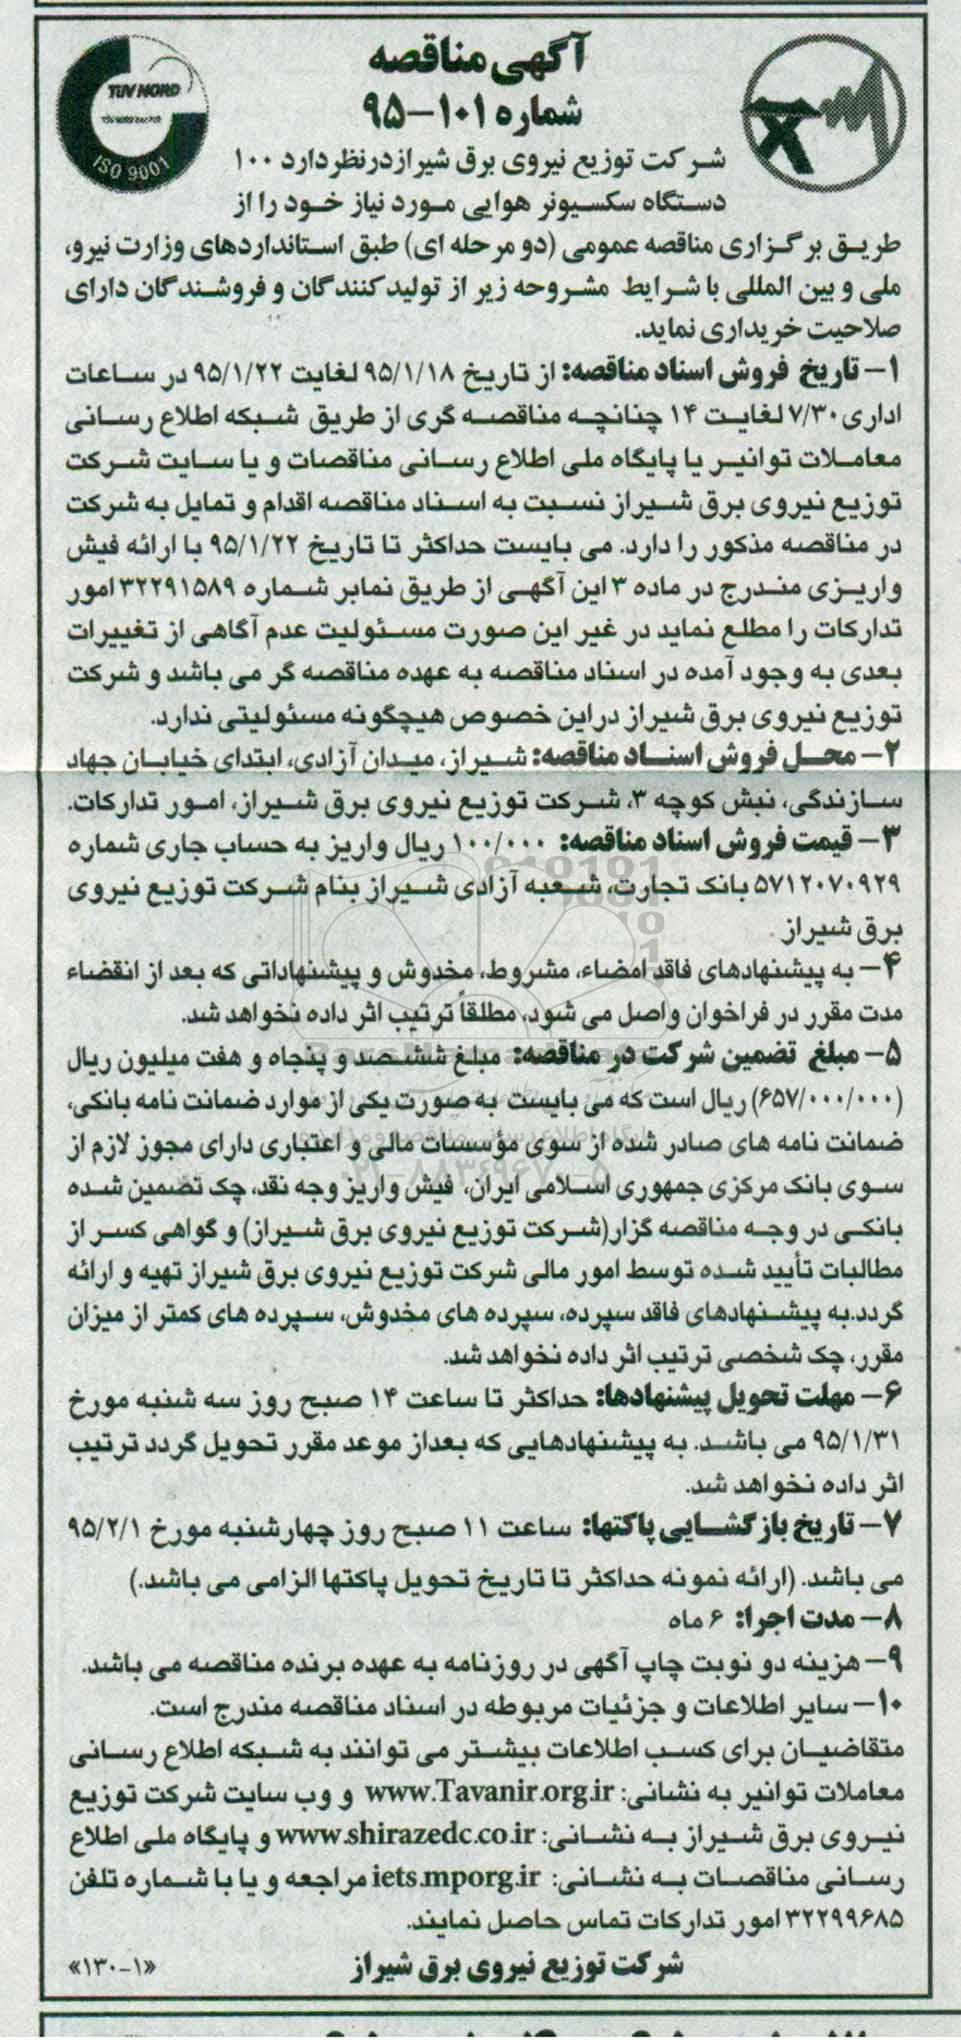 آگهی مناقصه
شماره ۱۰۱-۹۵
TUV NORD
ISO 9001
شرکت توزیع نیروی برق شیراز درنظر دارد ۱۰۰
دستگاه سکسیونر هوایی مورد نیاز خود را از
طریق برگزاری مناقصه عمومی (دو مرحله ای) طبق استانداردهای وزارت نیرو،
ملی و بین المللی با شرایط مشروحه زیر از تولیدکنندگان و فروشندگان دارای
صلاحیت خریداری نماید.
۱- تاریخ فروش اسناد مناقصه: از تاریخ ۹۵/۱/۱۸ لغایت ۹۵/۱/۲۲ در ساعات
اداری ۷/۳۰ لغایت ۱۴ چنانچه مناقصه گری از طریق شبکه اطلاع رسانی
معاملات توانیر یا پایگاه ملی اطلاع رسانی مناقصات و یا سایت شرکت
توزیع نیروی برق شیراز نسبت به اسناد مناقصه اقدام و تمایل به شرکت
در مناقصه مذکور را دارد. می بایست حداکثر تا تاریخ ۹۵/۱/۲۲ با ارائه فیش
واریزی مندرج در ماده ۳ این آگهی از طریق نمابر شماره ۳۲۲۹۱۵۸۹ امور
تدارکات را مطلع نماید در غیر این صورت مسئولیت عدم آگاهی از تغییرات
بعدی به وجود آمده در اسناد مناقصه به عهده مناقصه گر می باشد و شرکت
توزیع نیروی برق شیراز دراین خصوص هیچگونه مسئولیتی ندارد.
۲- محل فروش اسناد مناقصه: شیراز، میدان آزادی، ابتدای خیابان جهاد
سازندگی، نبش کوچه ۳، شرکت توزیع نیروی برق شیراز، امور تدارکات.
۳- قیمت فروش اسناد مناقصه: ۱۰۰/۰۰۰ ریال واریز به حساب جاری شماره
۵۷۱۲۰۷۰۹۲۹ بانک تجارت، شعبه آزادی شیراز بنام شرکت توزیع نیروی
برق شیراز
۴- به پیشنهادهای فاقد امضاء، مشروط، مخدوش و پیشنهاداتی که بعد از انقضاء
مدت مقرر در فراخوان واصل می شود، مطلقاً ترتیب اثر داده نخواهد شد.
۵- مبلغ تضمین شرکت در مناقصه: مبلغ ششصد و پنجاه و هفت میلیون ریال
(۶۵۷/۰۰۰/۰۰۰) ریال است که می بایست به صورت یکی از موارد ضمانت نامه بانکی،
ضمانت نامه های صادر شده از سوی مؤسسات مالی و اعتباری دارای مجوز لازم از
سوی بانک مرکزی جمهوری اسلامی ایران، فیش واریز وجه نقد، چک تضمین شده
بانکی در وجه مناقصه گزار(شرکت توزیع نیروی برق شیراز) و گواهی کسر از
مطالبات تأیید شده توسط امور مالی شرکت توزیع نیروی برق شیراز تهیه و ارائه
گردد.به پیشنهادهای فاقد سپرده، سپرده های مخدوش، سپرده های کمتر از میزان
مقرر، چک شخصی ترتیب اثر داده نخواهد شد.
۶- مهلت تحویل پیشنهادها: حداکثر تا ساعت ۱۴ صبح روز سه شنبه مورخ
۹۵/۱/۳۱ می باشد. به پیشنهادهایی که بعداز موعد مقرر تحویل گردد ترتیب
اثر داده نخواهد شد.
۷- تاریخ بازگشایی پاکتها: ساعت ۱۱ صبح روز چهارشنبه مورخ ۹۵/۲/۱
می باشد. (ارائه نمونه حداکثر تا تاریخ تحویل پاکتها الزامی می باشد.)
۸- مدت اجرا: ۶ ماه
۹- هزینه دو نوبت چاپ آگهی در روزنامه به عهده برنده مناقصه می باشد.
۱۰- سایر اطلاعات و جزئیات مربوطه در اسناد مناقصه مندرج است.
متقاضیان برای کسب اطلاعات بیشتر می توانند به شبکه اطلاع رسانی
معاملات توانیر به نشانی: www.Tavanir.org.ir و وب سایت شرکت توزیع
نیروی برق شیراز به نشانی: www.shirazedc.co.ir و پایگاه ملی اطلاع
رسانی مناقصات به نشانی: iets.mporg.ir مراجعه و یا با شماره تلفن
۳۲۲۹۹۶۸۵ امور تدارکات تماس حاصل نمایند.
شرکت توزیع نیروی برق شیراز
«۱۳۰-۱»